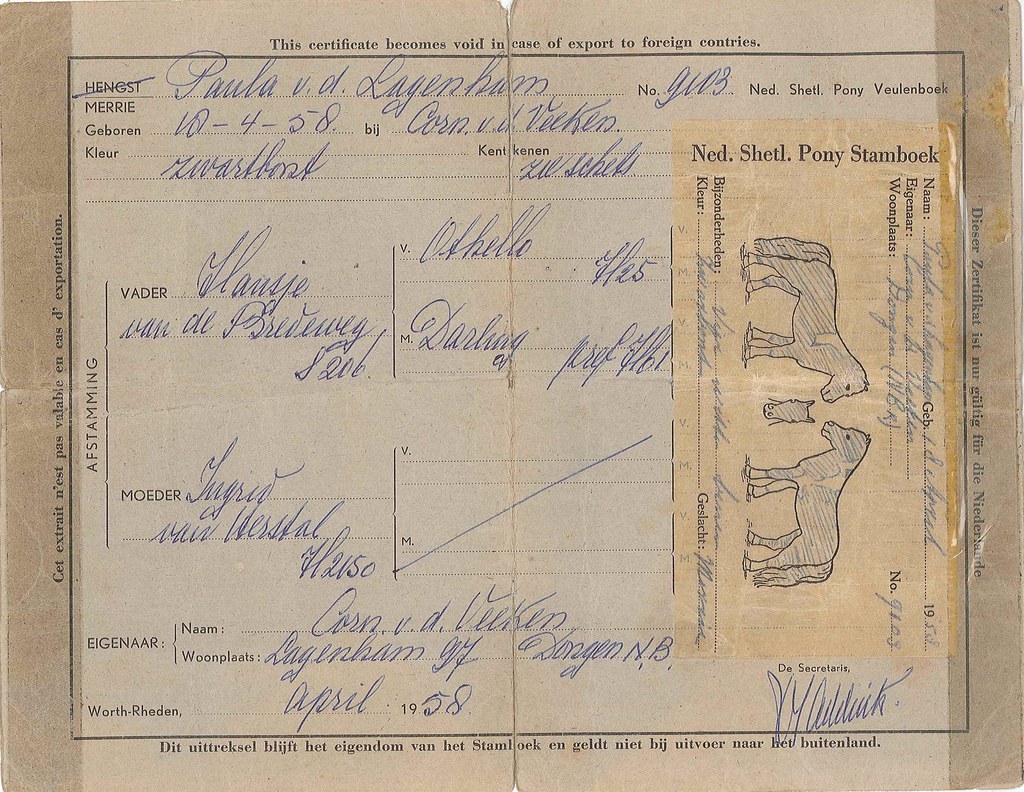 This certificate becomes void in case of export to foreign contries.
HENGST Paula v. d. Lagenham No. 9103 Ned. Shetl. Pony Veulenboek
MERRIE
Geboren 10-4-58 bij Corn. v. d. Veeken.
Kleur zwartbont Kentekenen zie schets
AFSTAMMING
VADER Hansje
van de Bredeweg
S206
V. Othello
H25
M. Darling
pref H61
MOEDER Ingrid
van Herstal
H2150
V.
M.
EIGENAAR:
Naam: Corn. v. d. Veeken
Woonplaats: Lagenham 97 Dongen N.B.
Worth-Rheden, april 1958
De Secretaris,
Dit uittreksel blijft het eigendom van het Stamboek en geldt niet bij uitvoer naar het buitenland.
Cet extrait n'est pas valable en cas d'exportation.
Dieser Zertifikat ist nur gültig für die Niederlande
Ned. Shetl. Pony Stamboek
Naam: Paula v. d. Lagenham Geb. 1958
Eigenaar: Corn. v. d. Veeken
Woonplaats: Dongen (N.B.) No. 9103
Bijzonderheden:
Kleur: Zwartbont Geslacht: Merrie